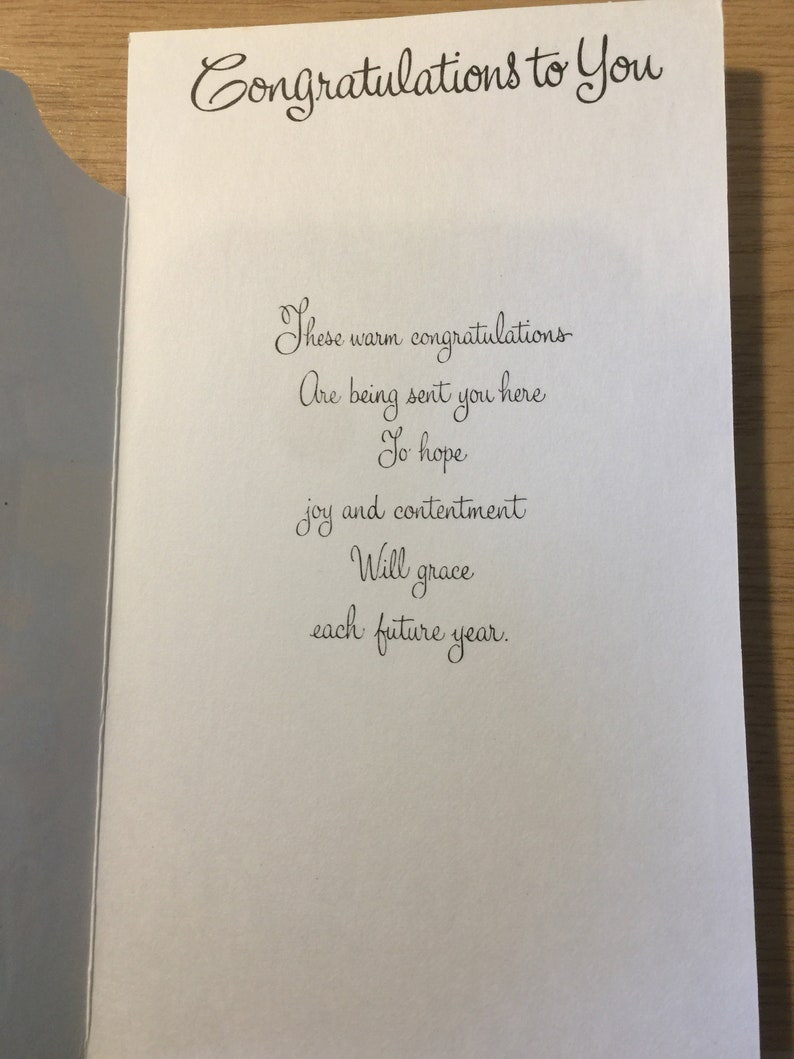 Congratulations to You
These warm congratulations
Are being sent you here
To hope
joy and contentment
Will grace
each future year.